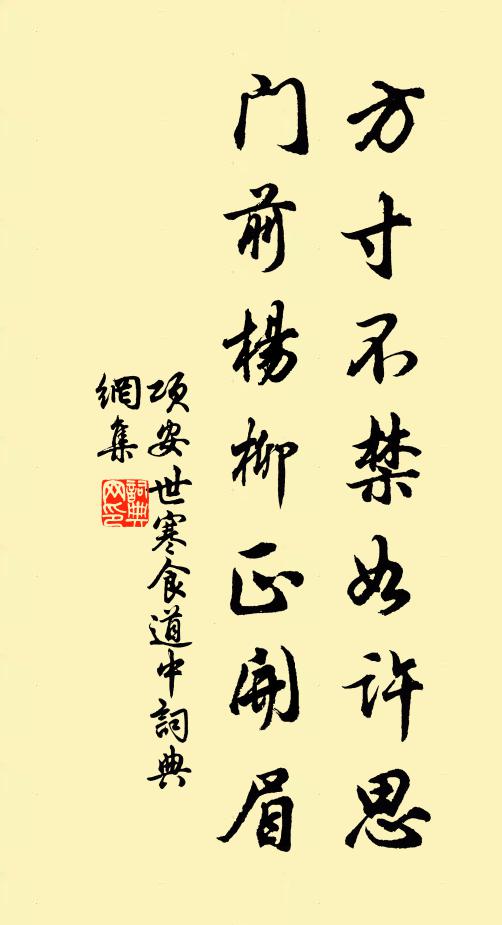 方寸不禁如许思
门前杨柳正开眉
项安世寒食道中词典
網集
词典网印